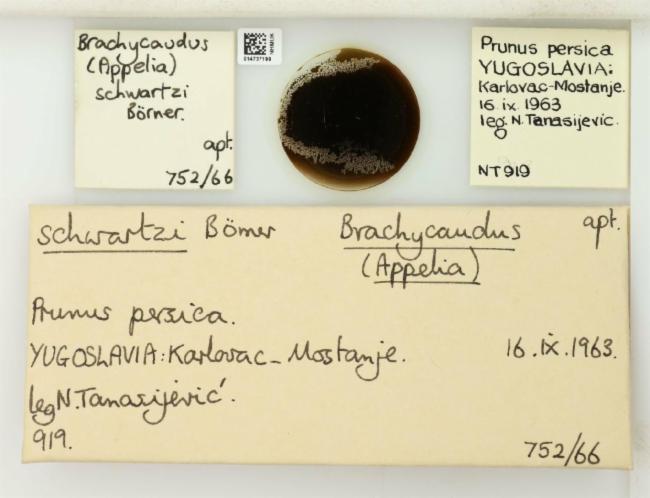 Brachycaudus
(Appelia)
schwartzi
Börner.
apt.
752/66
NHMUK
Prunus persica
YUGOSLAVIA:
Karlovac-Mostanje.
16.ix.1963
leg. N. Tanasijevic.
NT 919
schwartzi Börner Brachycaudus apt.
(Appelia)
Prunus persica.
YUGOSLAVIA: Karlovac-Mostanje. 16.ix.1963.
leg N. Tanasijević.
919.
752/66